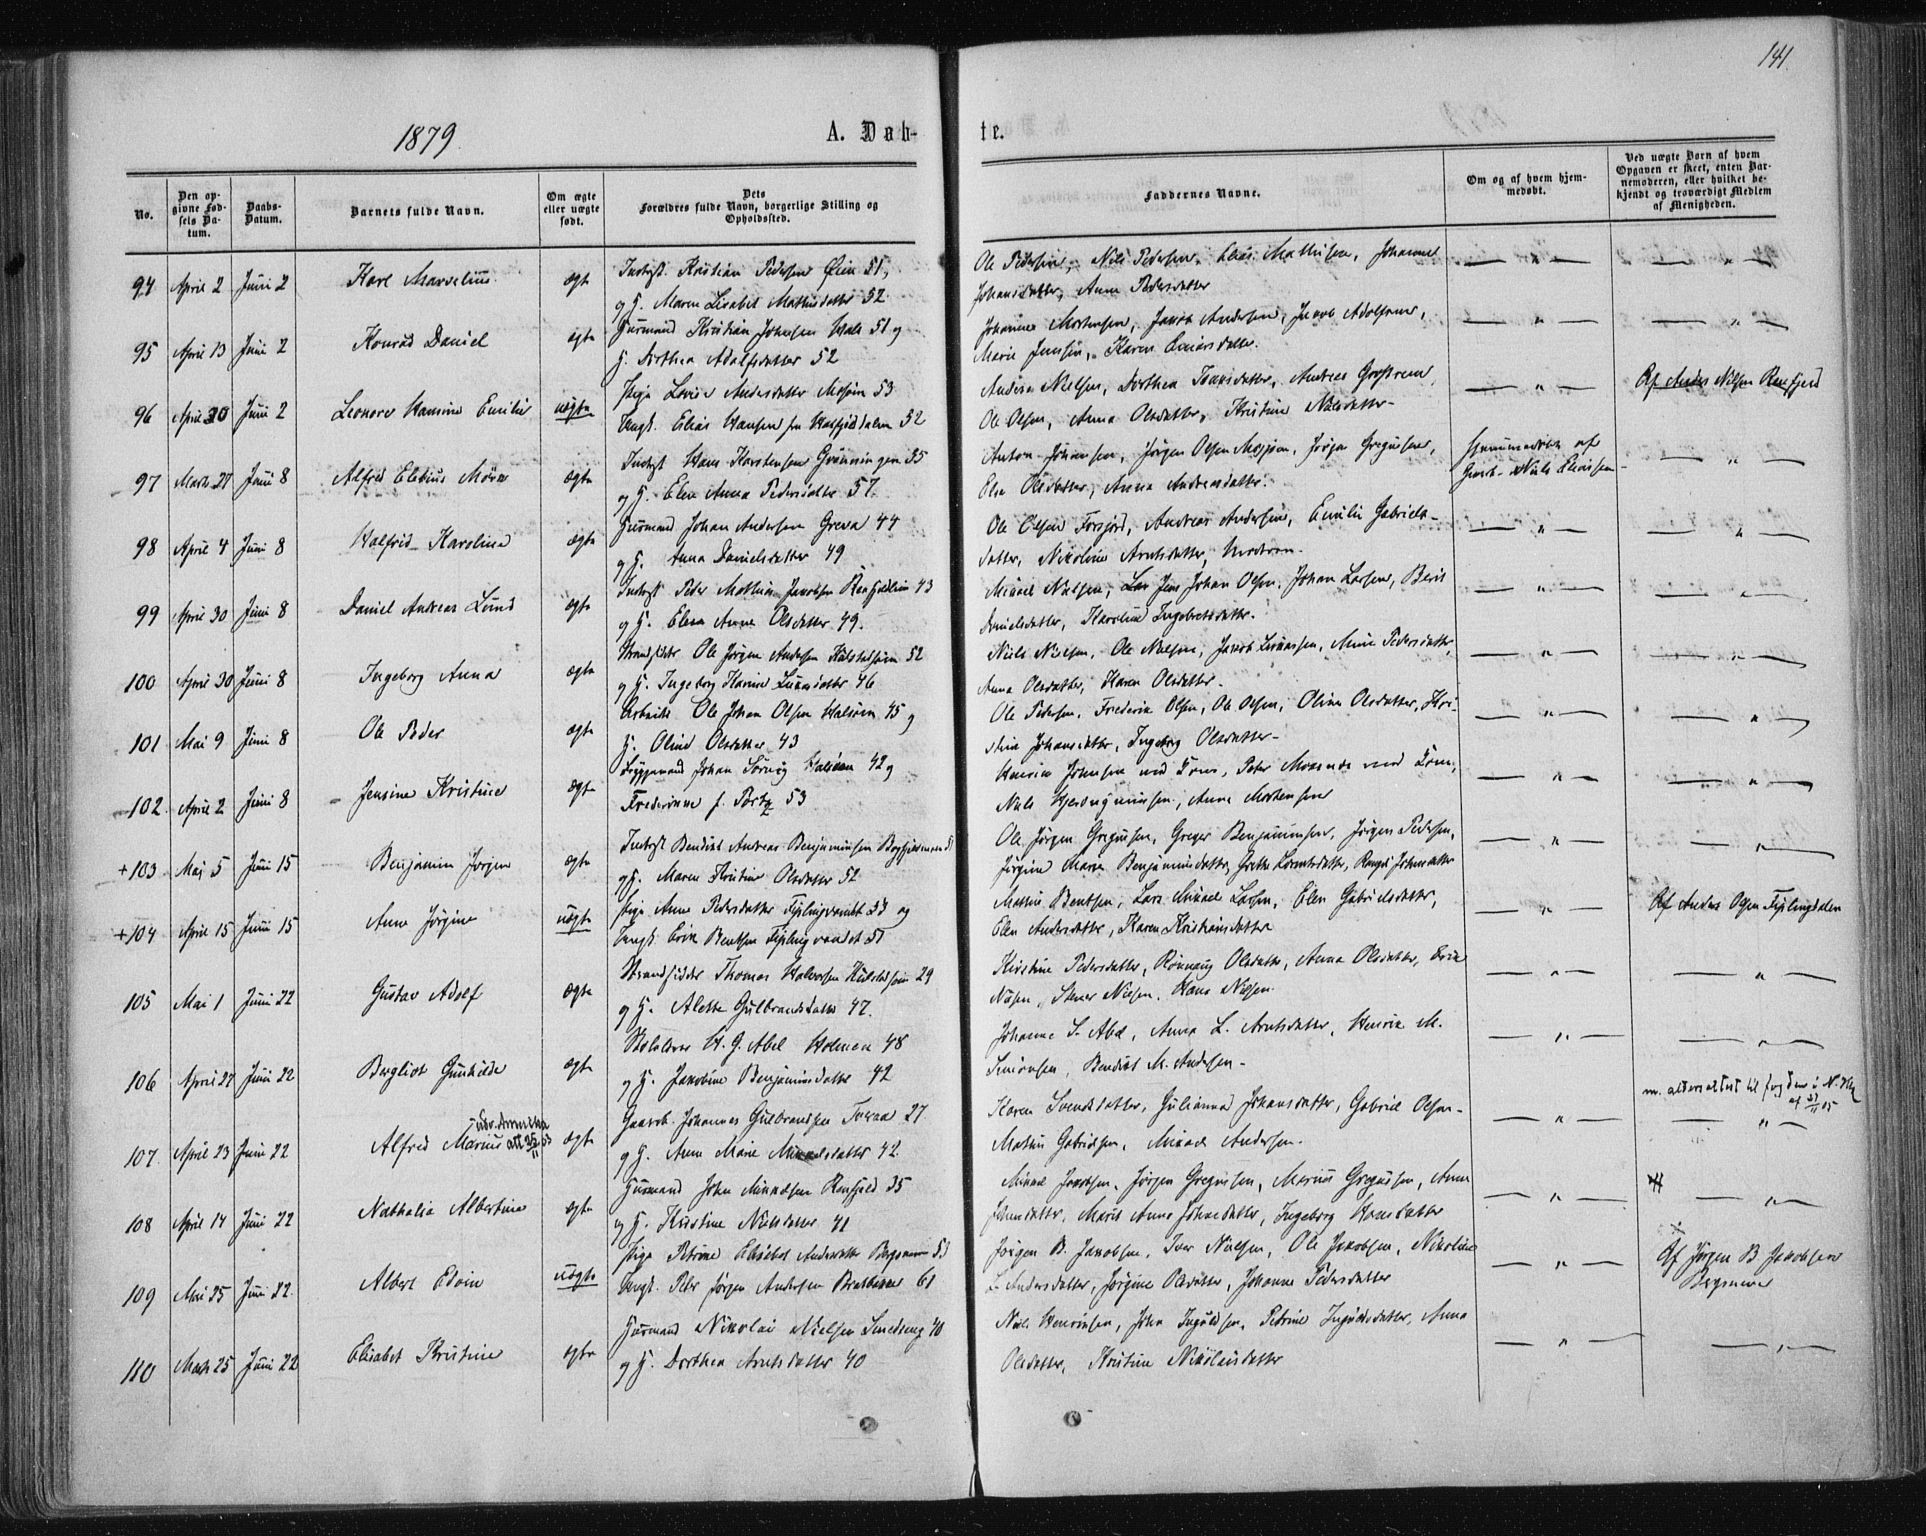 141.
1879
A. Døb-
te.
No.
Den op-
givne Fød-
sels Da-
tum.
Daabs-
Datum.
Barnets fulde Navn.
Om ægte
eller uægte
født.
Dets
Forældres fulde Navn, borgerlige Stilling og
Opholdssted.
Faddernes Navne.
Om og af hvem hjem-
medøbt.
Ved uægte Børn af hvem
Opgaven er skeet, enten Bar-
nemoderen, eller hvilket be-
kjendt og troværdigt Medlem
af Menigheden.
94 April 2 Juni 2 Karl ægte Indrgst. Kristian Pedersen Øien 51,
og H. Maren Lisabet Mathisdatter 52.
Ole Pedersen, Nils Pedersen, Elias Mathisen, Johanna
Johansdatter, Anna Pedersdatter
95 April 13 Juni 2 Konrad Daniel ægte Husmand Kristian Johnsen Hals 51 og
H. Dorthea Adolfsdatter 52
Johannes Mortensen, Jakob Andersen, Jacob Adolfsen,
Marie Jensen, Karen
96 April 30 Juni 2 Leonore Hansine Emilie uægte Pige Lovise Andersdatter Mosjøen 53
Ungk. Elias Hansen fra 52
Anders Nielsen, Dorthea Isaksdatter, Andreas
Ole Olsen, Anna Olsdatter, Kristine Nilsdatter
Af Anders Nilsen Renfjeld
97 Marts 27 Juni 8 Alfred ægte Indrgst. Hans Karstensen 35
og H. Elen Anna Pedersdatter 57.
Anton Johansen, Jørgen Olsen Mosjøen, Jørgen Gregusen,
Else Olsdatter, Anna Andreasdatter.
Hjemmedøbt af
Nils
98 April 4 Juni 8 Halfrid Karolina ægte Husmand Johan Andersen 44
og H. Anna Danielsdatter 49
Ole Olsen Forsjord, Andreas Andersen, Emilie Gabriels-
datter, Nikoline Arntsdatter, Moderen.
99 April 30 Juni 8 Daniel Andreas Lund ægte Indrgst Peder Mathias Jakobsen 43
og H. Elen Anne Olsdatter 49.
Mikael Nielsen, Jens Johan Olsen, Johan Larsen, Berit
Danielsdatter, Karoline Ingebrigtsdatter.
100 April 30 Juni 8 Ingeborg Anna ægte Strandsidder Ole Jørgen Andersen 52
og H. Ingeborg 46
Niels Nielsen, Ole Nielsen, Jakob Pedersdatter,
Anna Olsdatter, Karen Olsdatter.
101 Mai 9 Juni 8 Ole Peder ægte Arbeider Ole Johan Olsen Halsøen 45 og
H. Olina Olsdatter 43
Ole Pedersen, Frederik Olsen, Ole Olsen, Olina Olsdatter, Kri-
stina Johansdatter, Ingeborg Olsdatter
102. April 2 Juni 8 Jensine Kristine ægte Johan Halsøen 42 og
53
Henrik Johnsen med Kone, Peter med Kone,
Niels Anna Mortensen
+103 Mai 5 Juni 15 Benjamin Jørgen ægte Indrgst Bendikt Andreas Benjaminsen 51
og H. Maren Kristine Olsdatter 52
Ole Jørgen Gregusen, Greger Benjaminsen, Jørgen Pedersen,
Jørgine Marie Benjaminsdatter,
+104 April 15 Juni 15 Anne Jørgine uægte Pige Anne Pedersdatter Fiplingvandet 53 og
Ungk. Erik Bentsen Fiplingvandet 51
Mathis Bentsen, Lars Mikael Larsen, Elen Gabrielsdatter,
Elen Andersdatter, Karen Kristiansdatter
Af Anders Olsen Fiplingdalen
105 Mai 1 Juni 22 Gustav Adolf ægte Strandsidder Thomas Halvorsen 29
og H. Alette Gulbrandsdatter 47.
Kirstine Pedersdatter, Rønnaug Olsdatter, Anna Olsdatter,
Nilsen, Stener Nilsen, Hans Nilsen.
106 April 27 Juni 22 Bergliot Gunhilde ægte H. G. Abel Holmen 48
og H. Jakobine Benjaminsdatter 42
Johanna S. Abel, Anna L. Arntsdatter, Henrik M.
Simonsen, Bendikt M. Andersen
107. April 23 Juni 22 Alfred Marius ægte Gaardb. Johannes Gulbrandsen 27.
og H. Anne Marie 42.
Karen Svendsdatter, Julianna Johansdatter, Gabriel Olsen
Mathis Gabrielsen, Mikael Andersen.
m. aldersattest til
108 April 14 Juni 22 Nathalia Albertine ægte Husmand John Mikkelsen Renfjeld 35
og H. Kirstine Nielsdatter 41
Mikael Jakobsen, Jørgen Gregusen, Marius Gregusen, Anne
Johnsdatter, Marit Anna Johnsdatter, Ingeborg Hansdatter
109 Mai 25 Juni 22. Albert Edvin uægte Pige Petrine Elisabet Andersdatter 53
Ungk. Peter Jørgen Andersen 61
Jørgen B. Jakobsen, Iver Nielsen, Ole Jakobsen, Nikoline
Andersdatter, Jørgine Olsdatter, Johanna Pedersdatter
Af Jørgen B Jakobsen
110 Marts 25 Juni 22 Elisabet Kristine ægte Husmand Nikolai Nielsen 40
og H. Dorthea Arntsdatter 40
Niels Henriksen, John Ingvaldsen, Petrine Ingvaldsdatter, Anna
Olsdatter, Kristine Nikolaisdatter